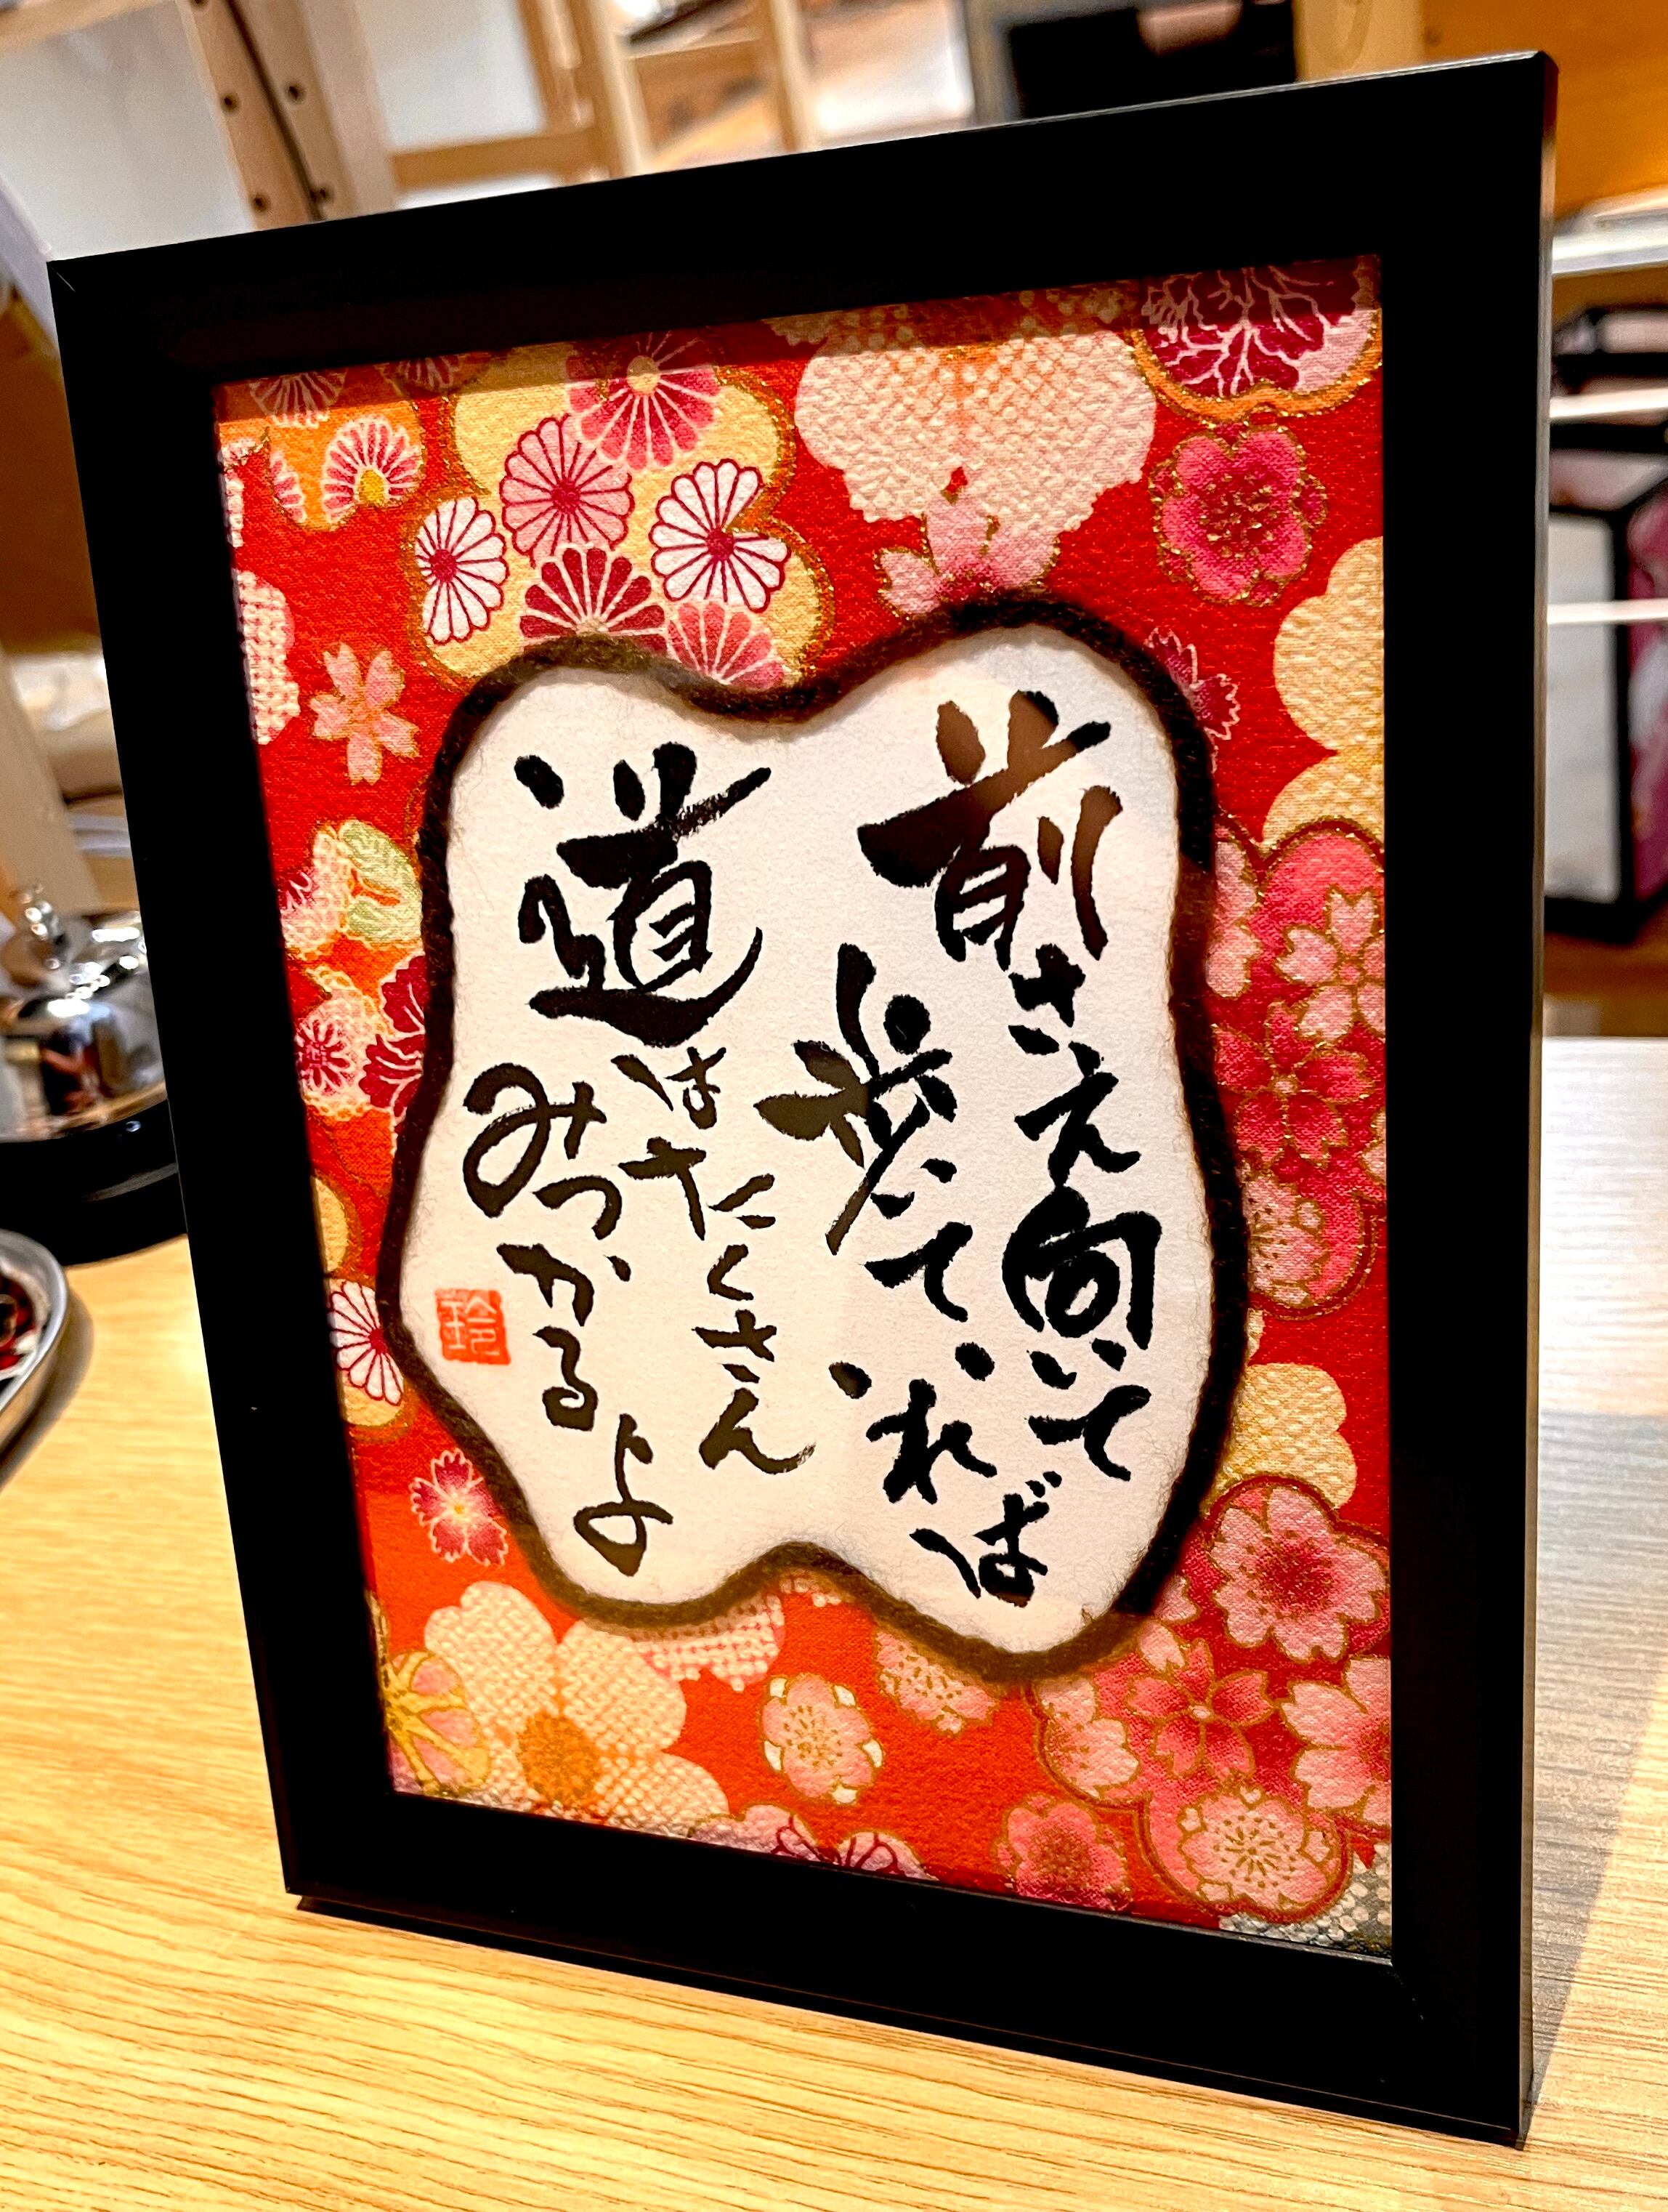 前さえ向いて
歩いていれば
道はたくさん
みつかるよ
玲